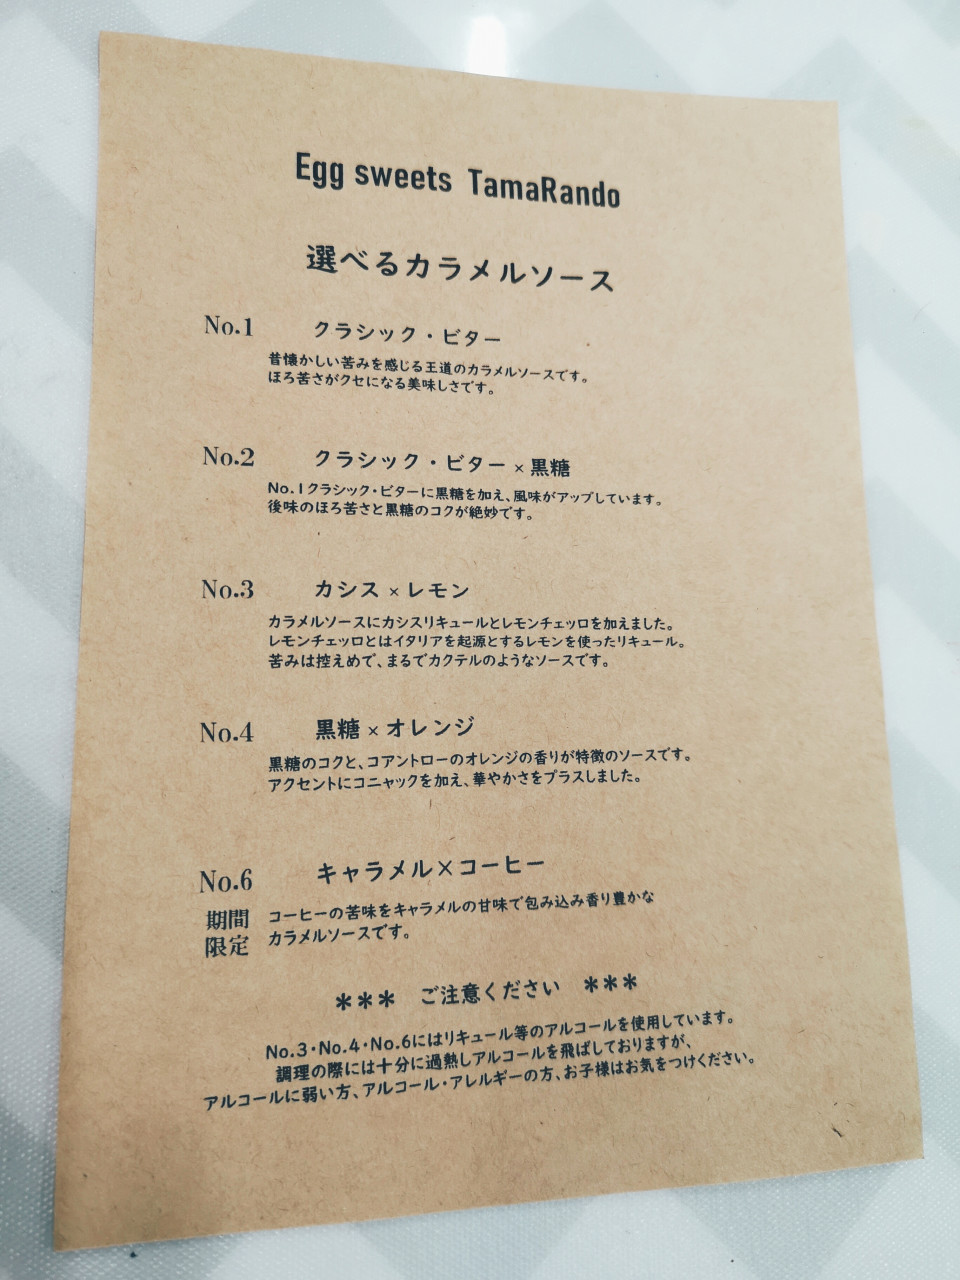 Egg sweets TamaRando
選べるカラメルソース
No.1 クラシック・ビター
昔懐かしい苦みを感じる王道のカラメルソースです。
ほろ苦さがクセになる美味しさです。
No.2 クラシック・ビター×黒糖
No.1クラシック・ビターに黒糖を加え、風味がアップしています。
後味のほろ苦さと黒糖のコクが絶妙です。
No.3 カシス×レモン
カラメルソースにカシスリキュールとレモンチェッロを加えました。
レモンチェッロとはイタリアを起源とするレモンを使ったリキュール。
苦みは控えめで、まるでカクテルのようなソースです。
No.4 黒糖×オレンジ
黒糖のコクと、コアントローのオレンジの香りが特徴のソースです。
アクセントにコニャックを加え、華やかさをプラスしました。
No.6 キャラメル×コーヒー
期間 コーヒーの苦味をキャラメルの甘味で包み込み香り豊かな
限定 カラメルソースです。
*** ご注意ください ***
No.3・No.4・No.6にはリキュール等のアルコールを使用しています。
調理の際には十分に過熱しアルコールを飛ばしておりますが、
アルコールに弱い方、アルコール・アレルギーの方、お子様はお気をつけください。